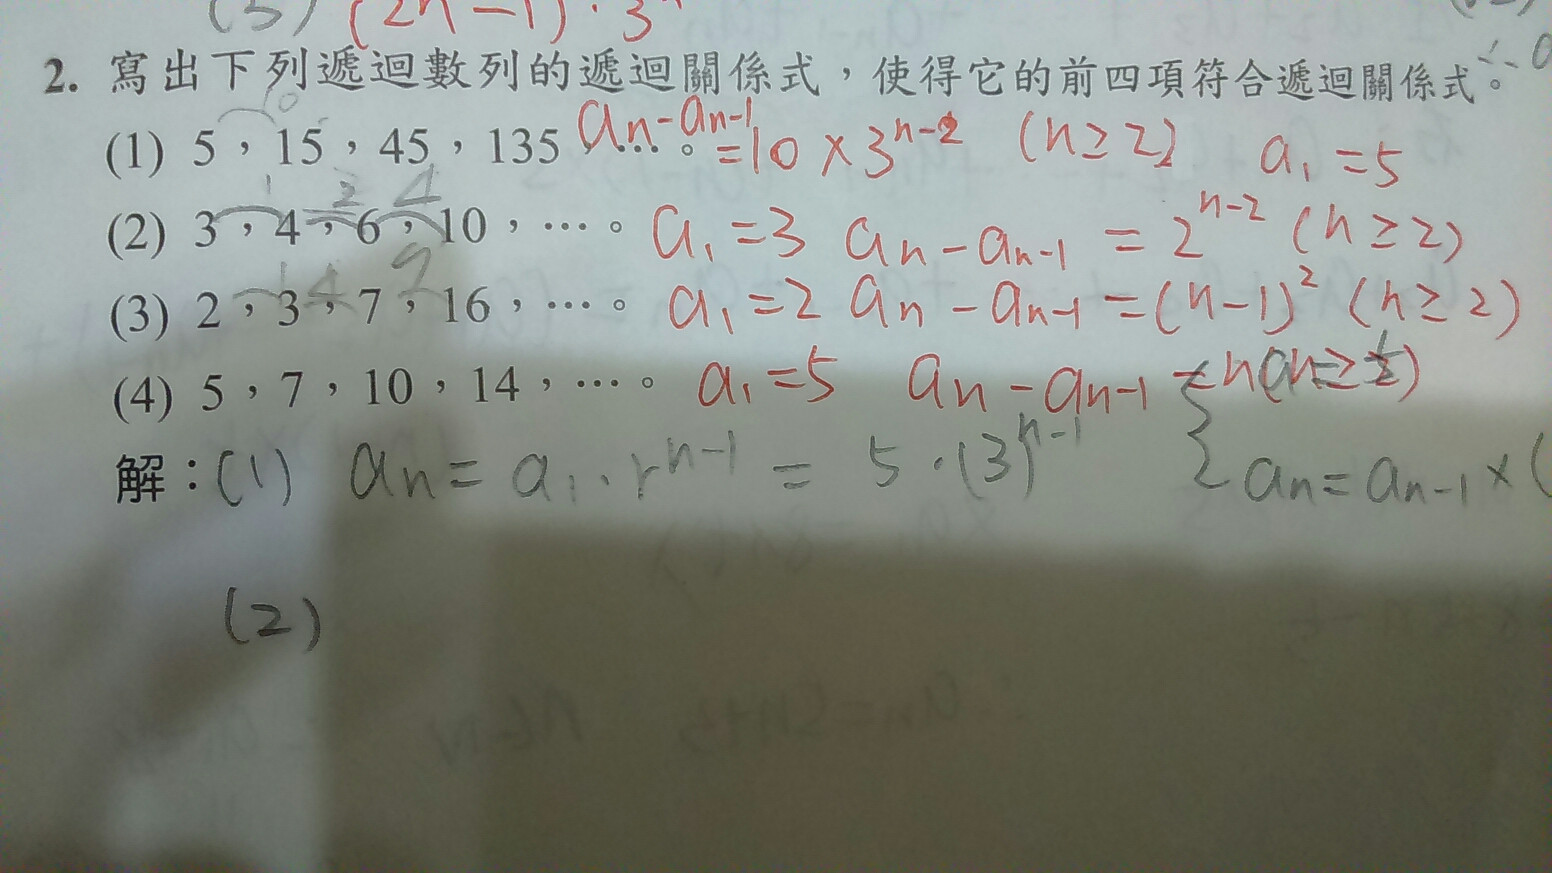 (3) (2n-1)·3
2. 寫出下列遞迴數列的遞迴關係式，使得它的前四項符合遞迴關係式。
10
(1) 5，15，45，135，…。 an-an-1=10×3^(n-2) (n≥2) a1=5
1 2 4
(2) 3，4，6，10，…。 a1=3 an-an-1=2^(n-2) (n≥2)
1 4 9
(3) 2，3，7，16，…。 a1=2 an-an-1=(n-1)² (n≥2)
(4) 5，7，10，14，…。 a1=5 an-an-1=n(n≥2)
解：(1) an=a1·r^(n-1)=5·(3)^(n-1) { an=an-1×(
(2)